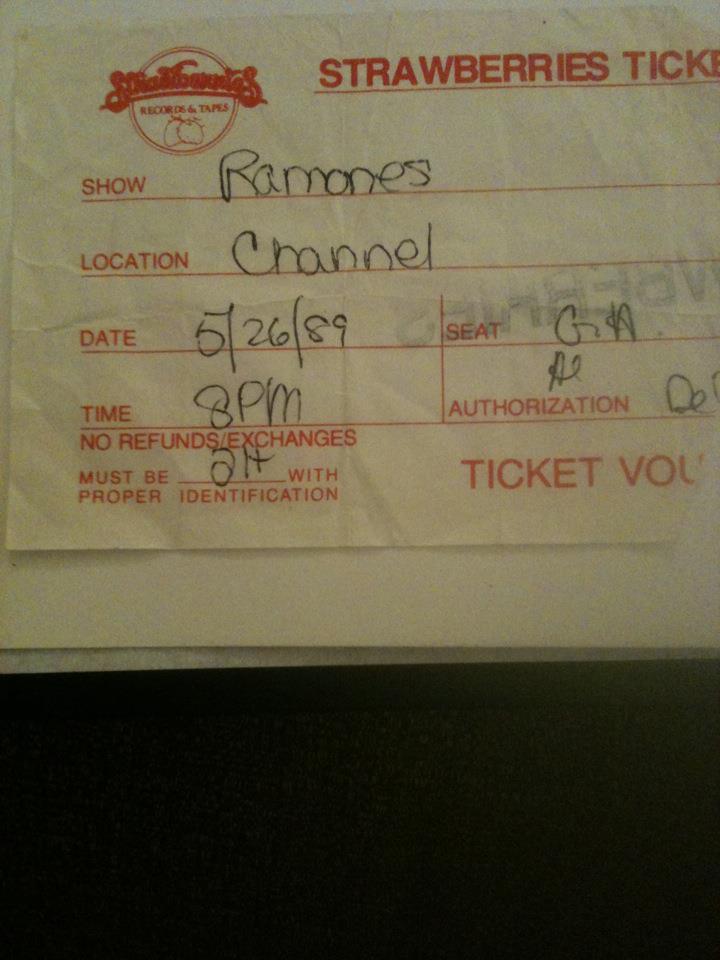 Strawberries
RECORDS & TAPES
STRAWBERRIES TICKE
SHOW Ramones
LOCATION Channel
DATE 5/26/89 SEAT G.A.
TIME 8PM AUTHORIZATION
NO REFUNDS/EXCHANGES
MUST BE 21+ WITH
PROPER IDENTIFICATION
TICKET VOU